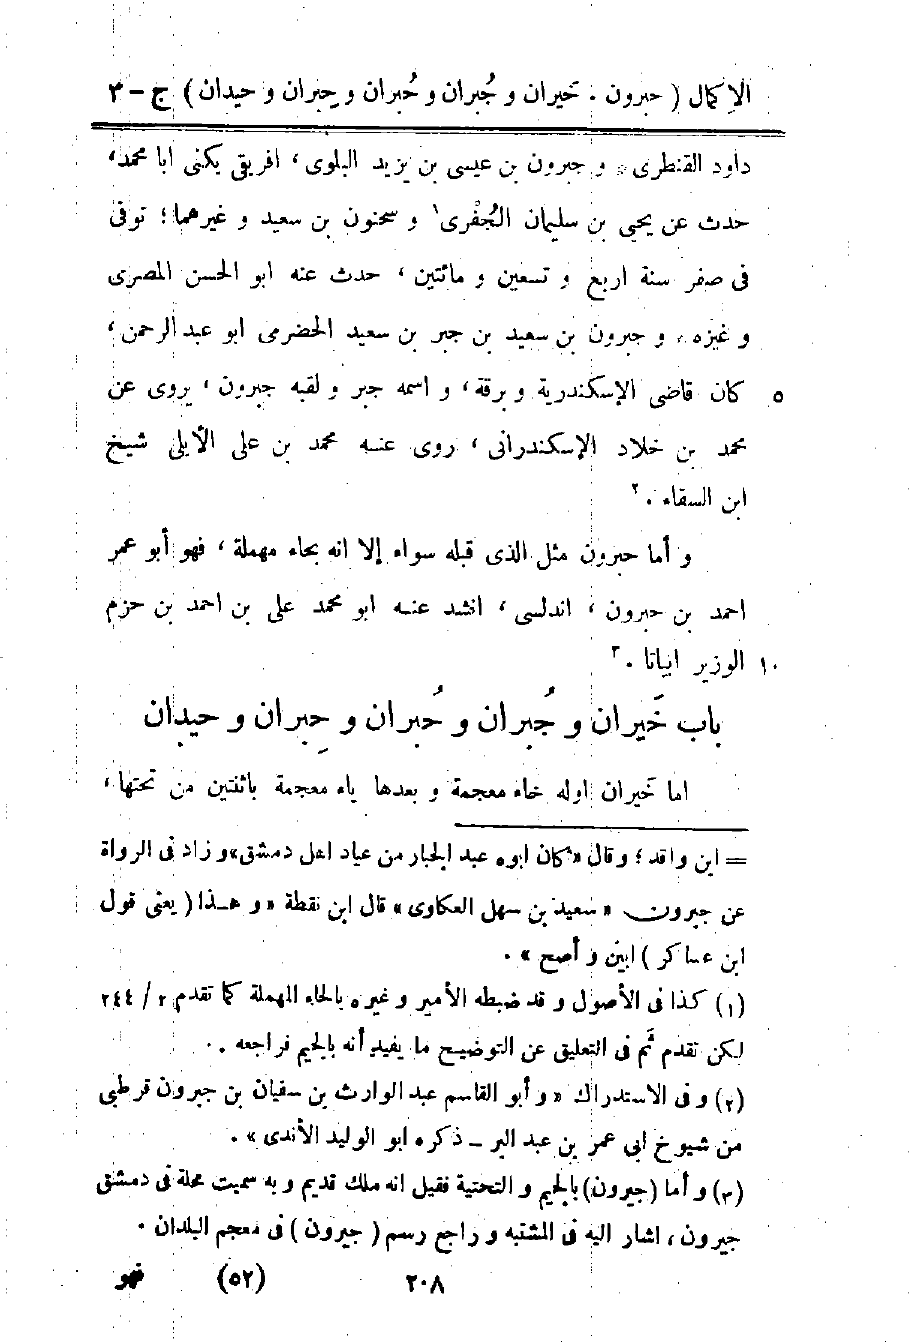 الإكمال ( حبرون . خَيران و جُبران و حُبران و حِبران و حيدان ) ج - ٣
داود القنطرى . و جبرون بن عيسى بن يزيد البلوى، افريقى يكنى ابا محمد،
حدث عن يحيى بن سليمان الجُفْرى ١ و سحنون بن سعيد و غيرهما ؛ توفى
فى صفر سنة اربع و تسعين و مائتين ، حدث عنه ابو الحسن المصرى
و غيره . و جبرون بن سعيد بن جبر بن سعيد الحضرمى ابو عبد الرحمن ،
كان قاضى الإسكندرية و برقة ، و اسمه جبر و لقبه جبرون ، يروى عن ٥
محمد بن خلاد الإسكندرانى ، روى عنه محمد بن على الأيلى شيخ
ابن السقاء . ٢
و أما حبرون مثل الذى قبله سواء إلا انه بحاء مهملة ، فهو أبو عمر
احمد بن حبرون ، اندلسى ، انشد عنه ابو محمد على بن احمد بن حزم
الوزير ابياتا . ٣ ١٠
باب خَيران و جُبران و حُبران و حِبران و حيدان
اما خَيران اوله خاء معجمة و بعدها ياء معجمة باثنتين من تحتها ،
= ابن واقد ؛ وقال « كان ابوه عبد الجبار من عباد اهل دمشق » و زاد فى الرواة
عن جبرون « سعيد بن سهل العكاوى » قال ابن نقطة « و هذا ( يعنى قول
ابن عساكر ) ابين و أصح » .
(١) كذا فى الأصول و قد ضبطه الأمير و غيره بالحاء المهملة كما تقدم ٢ / ٢٤٤
لكن تقدم ثَم فى التعليق عن التوضيح ما يفيد أنه بالجيم فراجعه .
(٢) و فى الاستدراك « و أبو القاسم عبد الوارث بن سفيان بن جبرون قرطبى
من شيوخ ابى عمر بن عبد البر - ذكره ابو الوليد الأندى » .
(٣) و أما (جيرون) بالجيم و التحتية فقيل انه ملك قديم و به سميت محلة فى دمشق
جيرون ، اشار اليه فى المشتبه و راجع رسم ( جيرون ) فى معجم البلدان .
٢٠٨ (٥٢) فهو